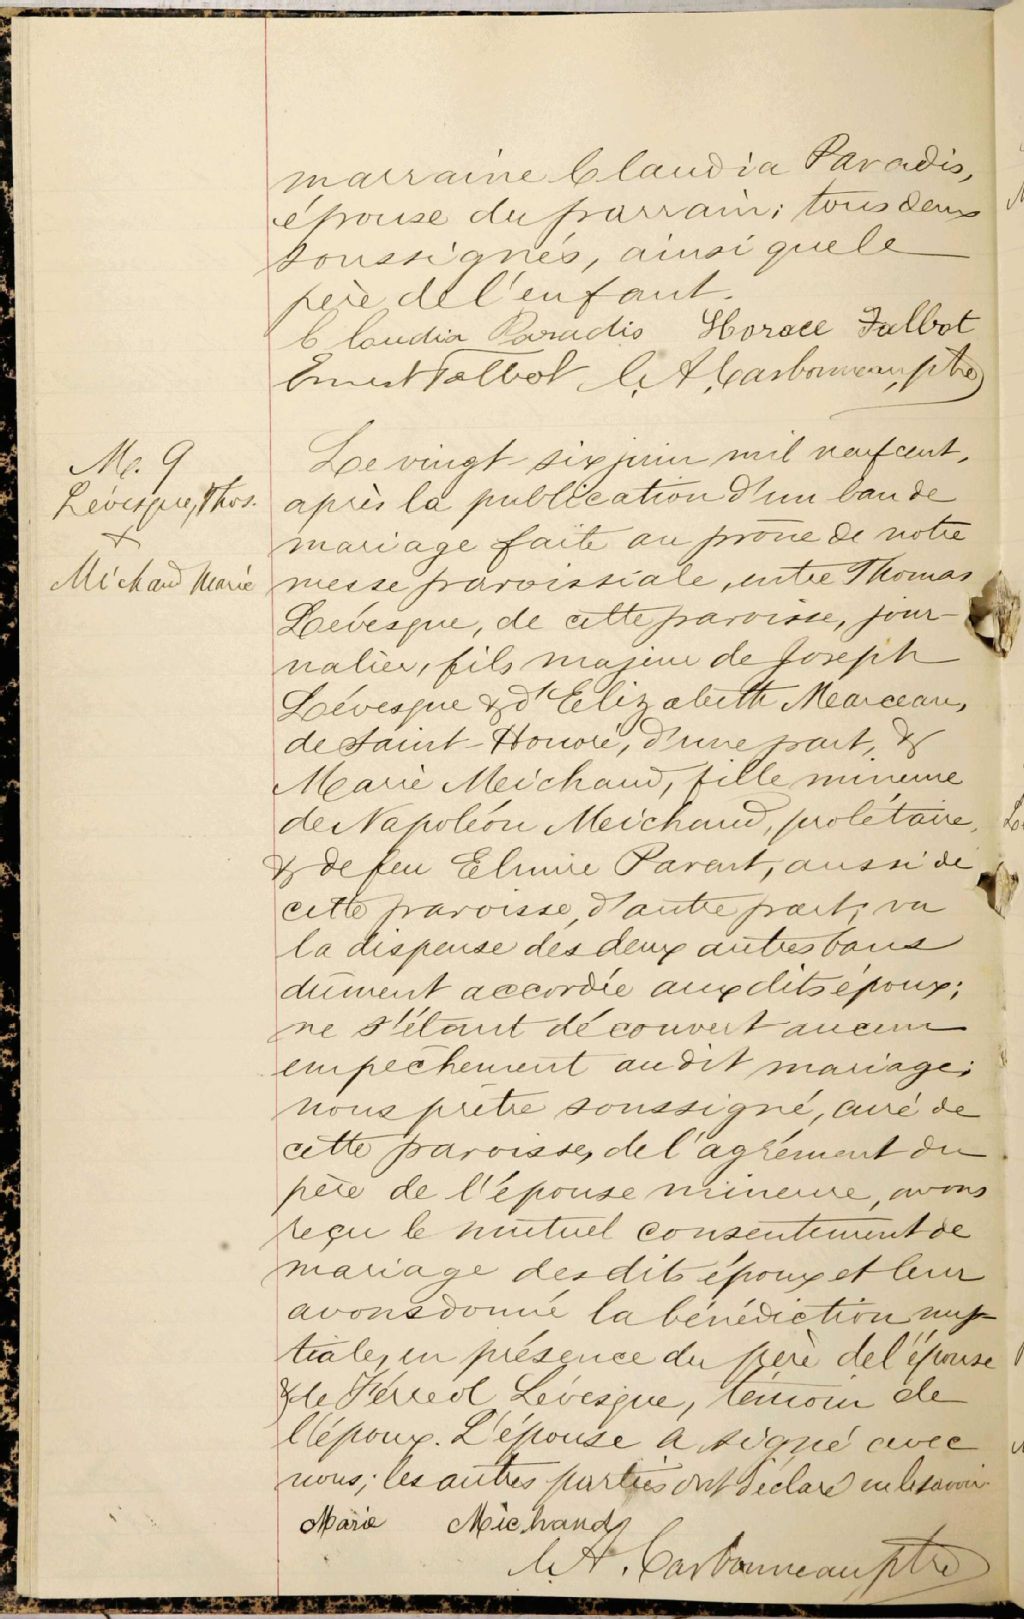 marraine Claudia Paradis,
épouse du parrain; tous deux
soussignés, ainsi que le
père de l'enfant.
Claudia Paradis Horace Talbot
Ernest Talbot C. A. Carbonneau, ptre
M. 9
Lévesque, Thos.
+
Michaud Marie
Le vingt-six juin mil neuf cent,
après la publication d'un ban de
mariage faite au prône de notre
messe paroissiale, entre Thomas
Lévesque, de cette paroisse, jour-
nalier, fils majeur de Joseph
Lévesque & d'Elizabeth Marceau,
de Saint-Honoré, d'une part, &
Marie Meichaud, fille mineure
de Napoléon Meichaud, prolétaire,
& de feu Elmire Parant, aussi de
cette paroisse, d'autre part; vu
la dispense des deux autres bans
dûment accordée aux dits époux;
ne s'étant découvert aucun
empêchement au dit mariage;
nous prêtre soussigné, curé de
cette paroisse, de l'agrément du
père de l'épouse mineure, avons
reçu le mutuel consentement de
mariage des dits époux et leur
avons donné la bénédiction nup-
tiale, en présence du père de l'épouse
& de Férreol Lévesque, témoin de
l'époux. L'épouse a signé avec
nous; les autres parties ont déclaré ne le savoir.
Marie Michaud
C. A. Carbonneau ptre